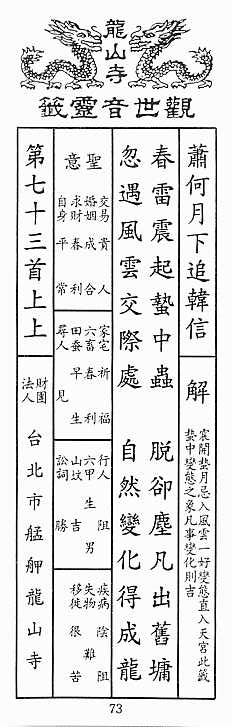 龍山寺
觀世音靈籤
蕭何月下追韓信
解
宸開蟄月忌入風雲一好變態直入天宮此籤
蟄中變態之象凡事變化則吉
春雷震起蟄中蟲 脫卻塵凡出舊墉
忽遇風雲交際處 自然變化得成龍
聖意
交易 貴人
婚姻 成合
求財 春利
自身 平常
家宅 祈福
六畜 春利
田蚕 早生
尋人 見
行人 阻
六甲 生男
山坟 吉
訟詞 勝
疾病 陰阻
失物 難
移徙 很苦
第七十三首上上
財團
法人
台北市艋舺龍山寺
73